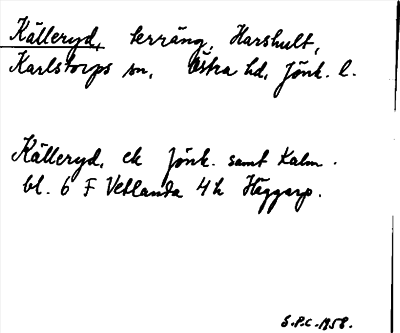 Källeryd, terräng, Harshult,
Karlstorps sn, Östra hd, Jönk. l.
Källeryd, ek Jönk. samt Kalm.
bl. 6 F Vetlanda 4h Häggarp.
S.P.C. 1958.